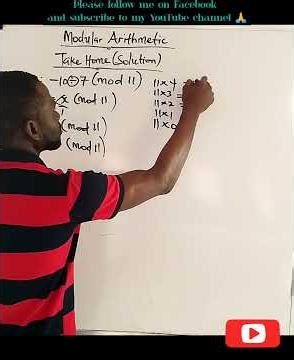 Please follow me on Facebook
and subscribe to my YouTube channel 🙏
Modular Arithmetic
Take Home (Solution)
-10÷7 (mod 11)
(mod 11)
(mod 11)
(mod 11)
11×4
11×3 =
11×2 =
11×1
11×0